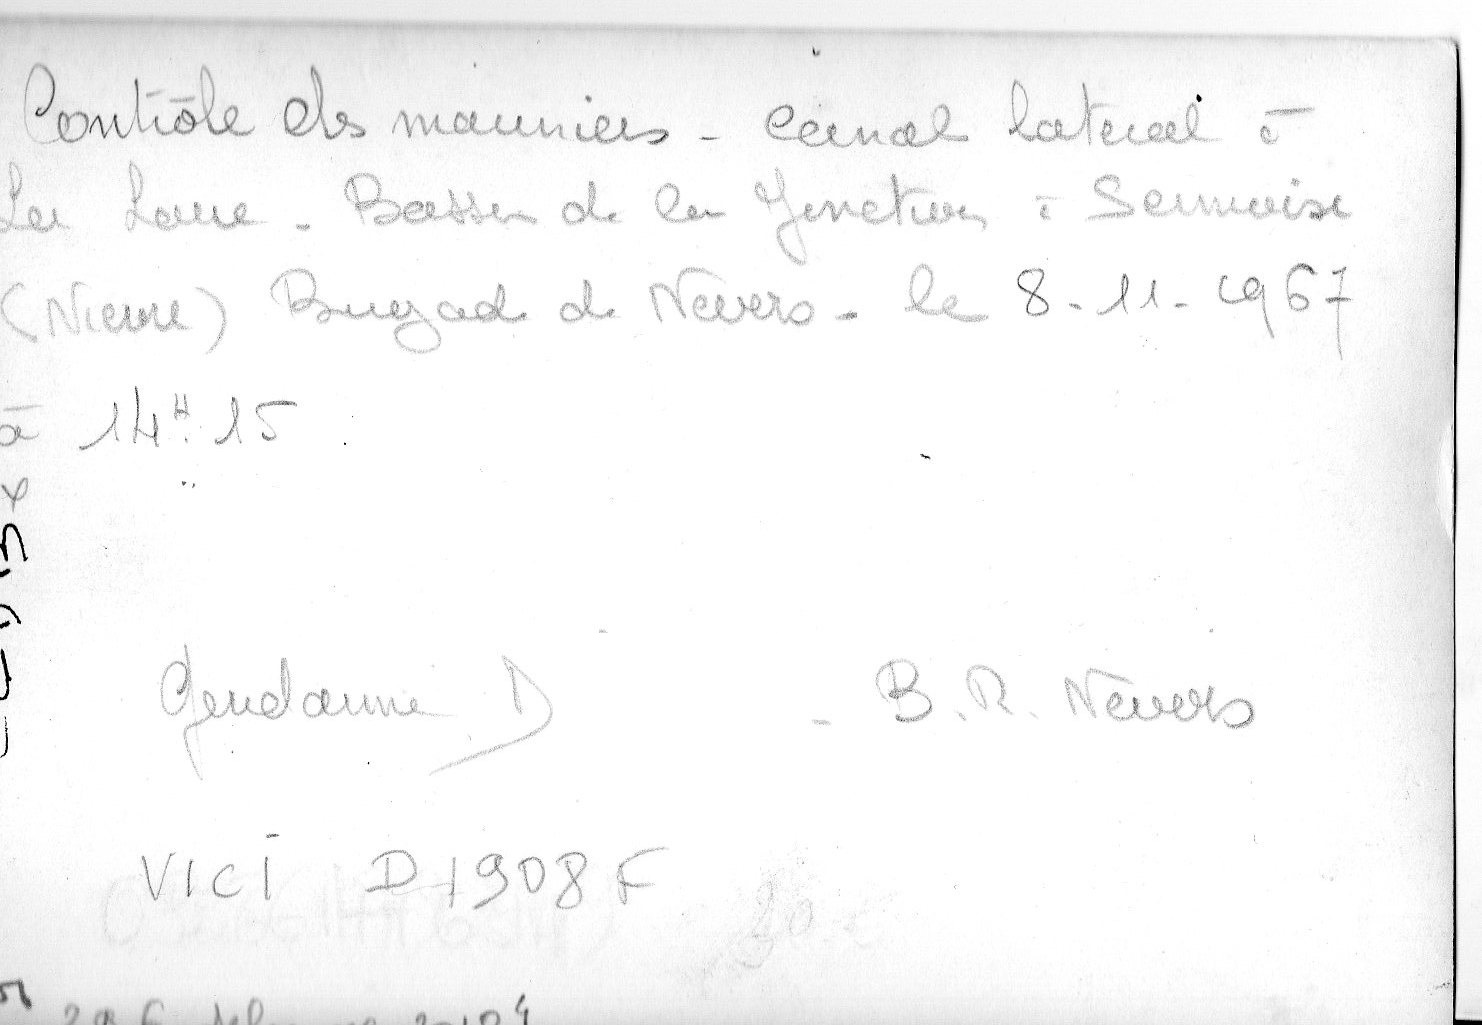 Contrôle des mariniers - Canal latéral à
La Loire - Bassin de la Jonction à Sermoise
(Nièvre) Brigade de Nevers - le 8-11-1967
à 14H15
Gendarme D - B.R. Nevers
VICI D1908F